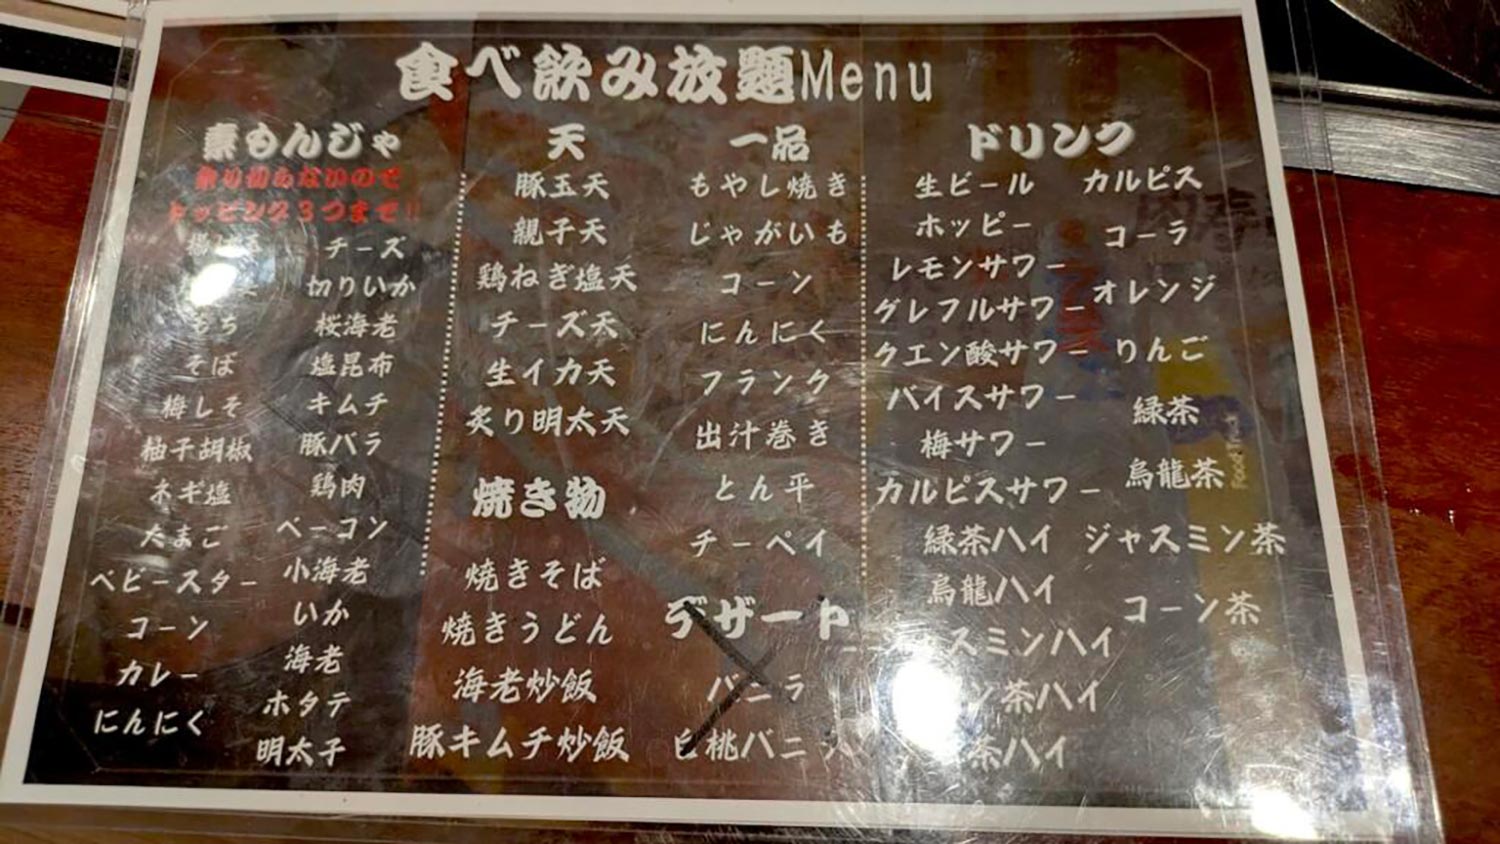 食べ飲み放題Menu
素もんじゃ
余り切らないので
トッピング3つまで!!
チーズ
切りいか
もち
桜海老
そば
塩昆布
梅しそ
キムチ
柚子胡椒
豚バラ
ネギ塩
鶏肉
たまご
ベーコン
ベビースター
小海老
コーン
いか
カレー
海老
にんにく
ホタテ
明太子
天
豚玉天
親子天
鶏ねぎ塩天
チーズ天
生イカ天
炙り明太天
焼き物
焼きそば
焼きうどん
海老炒飯
豚キムチ炒飯
一品
もやし焼き
じゃがいも
コーン
にんにく
フランク
出汁巻き
とん平
チーペイ
デザート
バニラ
白桃バニラ
ドリンク
生ビール
ホッピー
レモンサワー
グレフルサワー
クエン酸サワー
バイスサワー
梅サワー
カルピスサワー
緑茶ハイ
烏龍ハイ
スミンハイ
ン茶ハイ
茶ハイ
カルピス
コーラ
オレンジ
りんご
緑茶
烏龍茶
ジャスミン茶
コーン茶